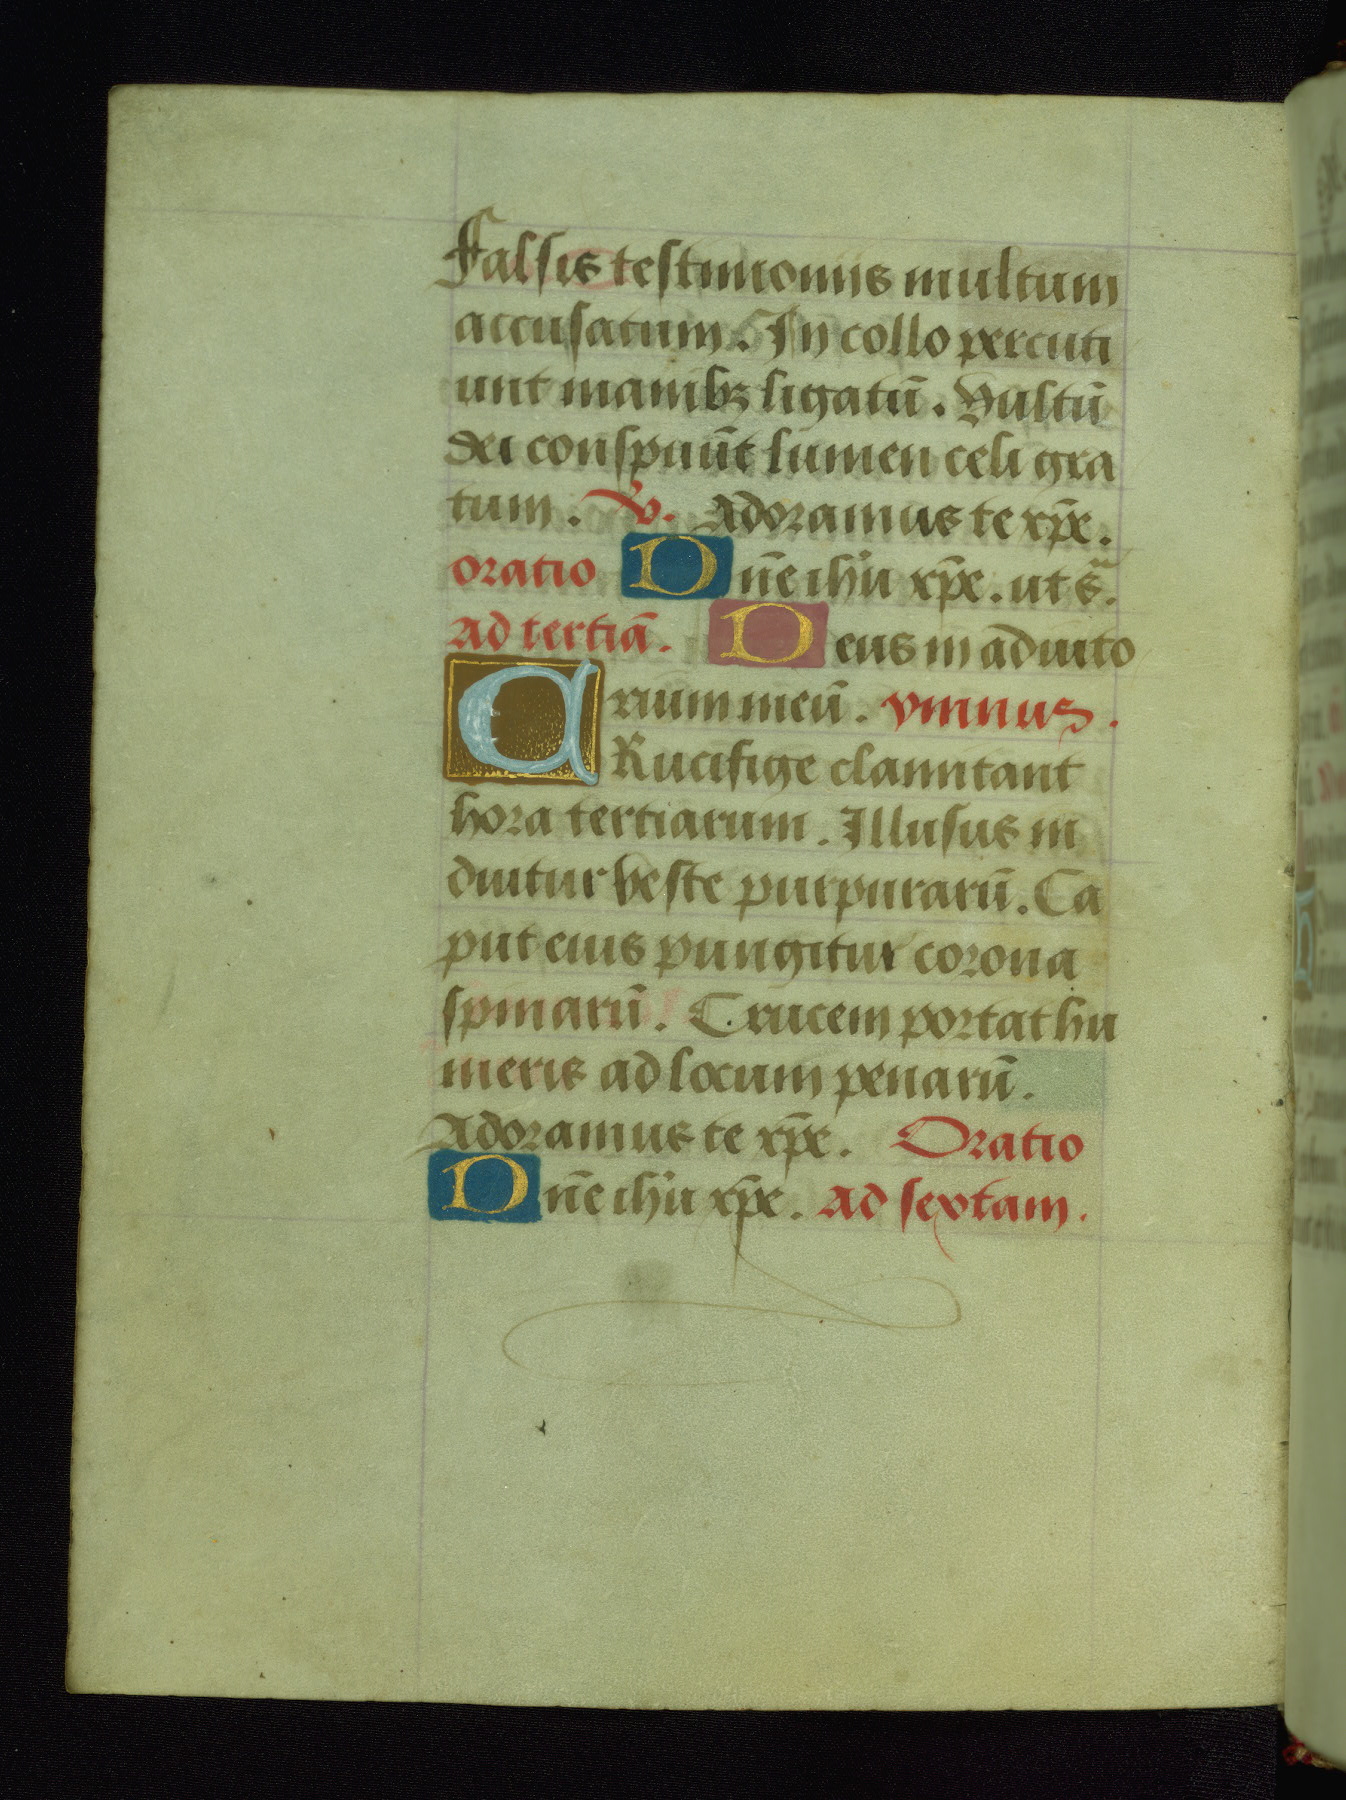 Falsis testimoniis multum
accusatum. In collo percuti
unt manibꝫ ligatū. Vultū
dei conspuūt lumen celi gra
tum. V. Adoramus te xp̄e.
oratio Dn̄e ih'u xp̄e. ut s̄.
Ad tertiā. Deus in adiuto
rium meū. ymnus.
CRucifige clamitant
hora tertiarum. Illusus in
duitur veste purpurarū. Ca
put eius pungitur corona
spinarū. Crucem portat hu
meris ad locum penarū.
Adoramus te xp̄e. Oratio
Dn̄e ih'u xp̄e. Ad sextam.